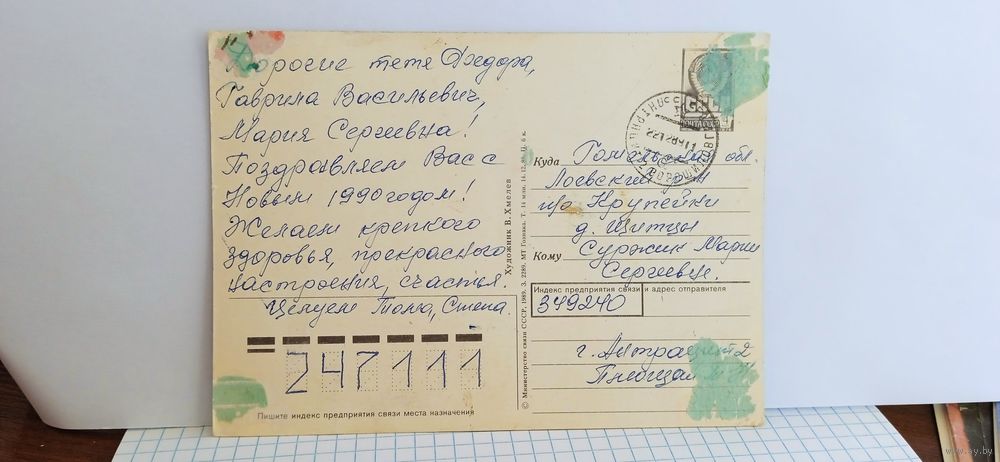 Дорогие тетя Федора,
Гаврила Васильевич,
Мария Сергеевна!
Поздравляем Вас с
Новым 1990 годом!
Желаем крепкого
здоровья, прекрасного
настроения, счастья.
Целуем Толя, Степа.
247111
Пишите индекс предприятия связи места назначения
Художник В. Хмелев
© Министерство связи СССР, 1989. З. 2280. МТ Гознака.
ПОЧТА СССР
Куда Гомельская обл.
Лоевский р-н
п/о Крупейки
д. Щитцы
Кому Суржик Марии
Сергеевне.
Индекс предприятия связи и адрес отправителя
349240
г. Антрацит 2
www.ay.by